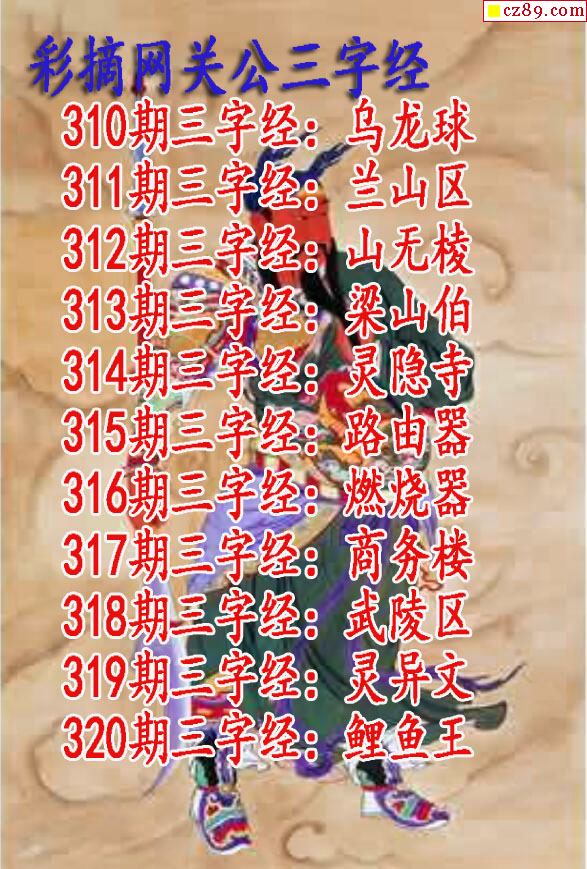 cz89.com
彩摘网关公三字经
310期三字经：乌龙球
311期三字经：兰山区
312期三字经：山无棱
313期三字经：梁山伯
314期三字经：灵隐寺
315期三字经：路由器
316期三字经：燃烧器
317期三字经：商务楼
318期三字经：武陵区
319期三字经：灵异文
320期三字经：鲤鱼王